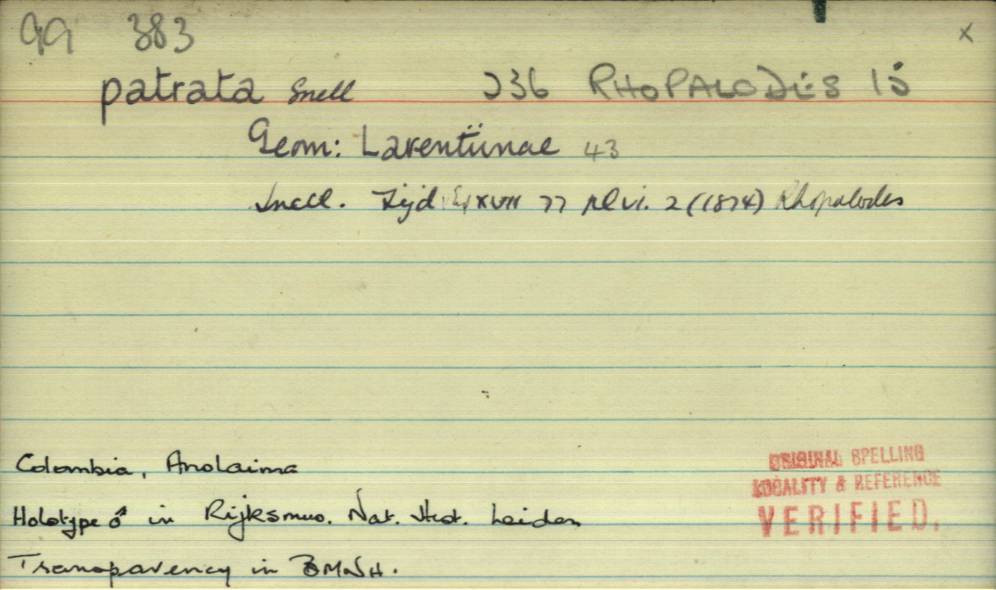 99 383 x
patrata Snell 236 RHOPALODES 15
Geom: Larentiinae 43
Snell. Tijd XVII 77 pl vi. 2 (1874) Rhopalodes
Colombia, Anolaima
Holotype ♂ in Rijksmus. Nat. Hist. Leiden
Transparency in BMNH.
ORIGINAL SPELLING
LOCALITY & REFERENCE
VERIFIED.